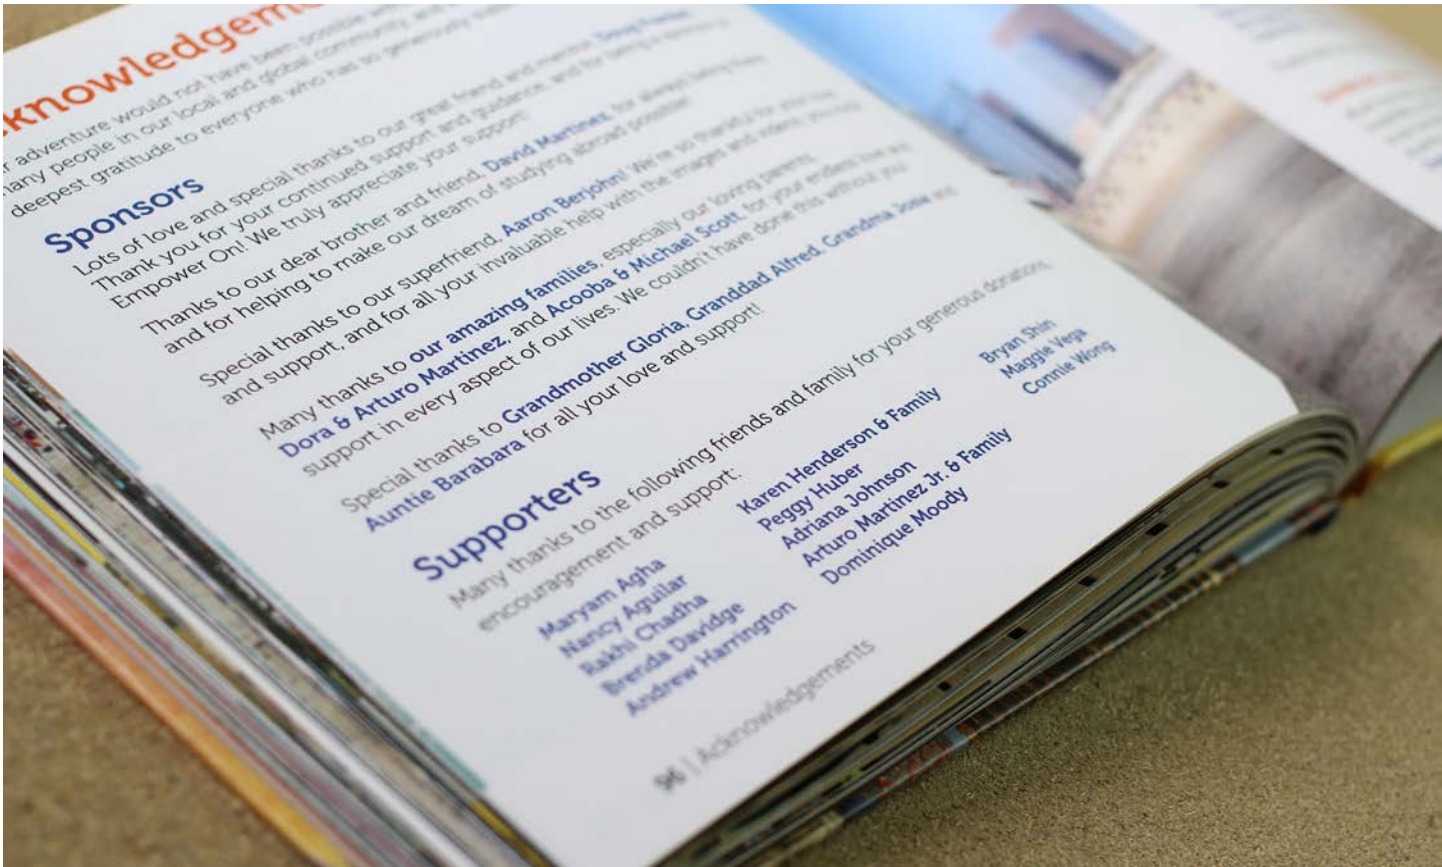 knowledgeme
r adventure would not have been possible
many people in our local and global community, and
deepest gratitude to everyone who has so generously
Sponsors
Lots of love and special thanks to our great friend and mentor, Doug
Thank you for your continued support and guidance, and for being a
Empower On! We truly appreciate your support!
Thanks to our dear brother and friend, David Martinez, for always being
and for helping to make our dream of studying abroad possible!
Special thanks to our superfriend, Aaron Berjohn! We're so thankful for your love
and support, and for all your invaluable help with the images and videos,
Many thanks to our amazing families, especially our loving parents,
Dora & Arturo Martinez, and Acooba & Michael Scott, for your endless love and
support in every aspect of our lives. We couldn't have done this without you!
Special thanks to Grandmother Gloria, Granddad Alfred, Grandma Josie and
Auntie Barabara for all your love and support!
Supporters
Many thanks to the following friends and family for your generous donations,
encouragement and support:
Maryam Agha
Nancy Aguilar
Rakhi Chadha
Brenda Davidge
Andrew Harrington
Karen Henderson & Family
Peggy Huber
Adriana Johnson
Arturo Martinez Jr. & Family
Dominique Moody
Bryan Shin
Maggie Vega
Connie Wong
96 | Acknowledgements